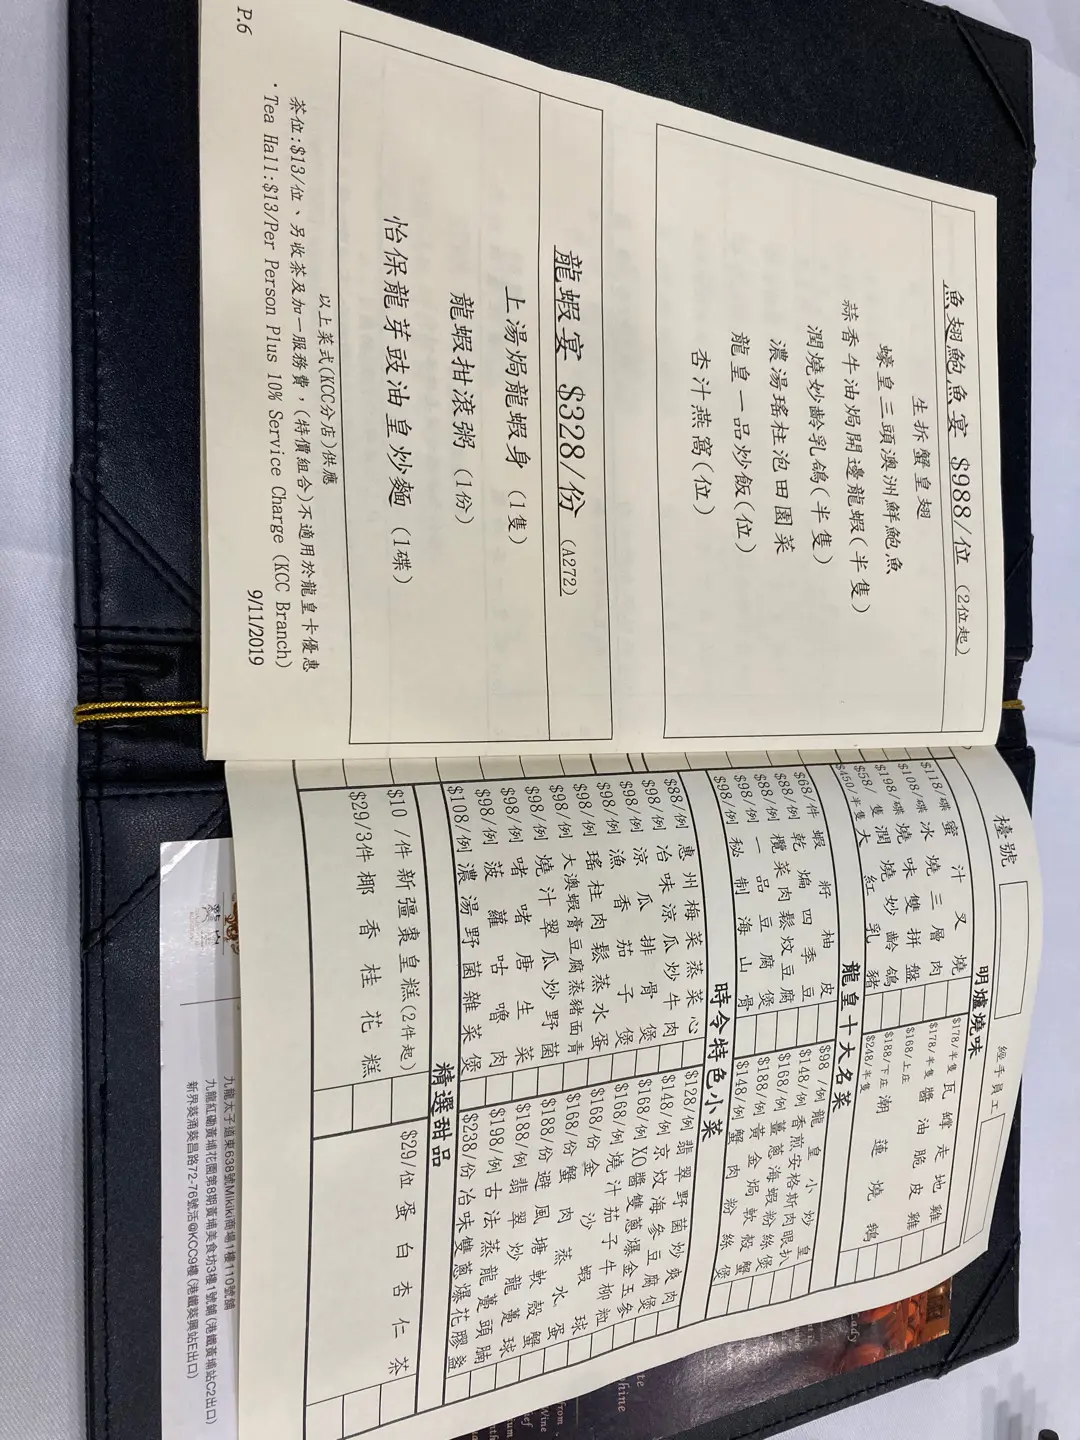 魚翅鮑魚宴 $988/位 (2位起)
生拆蟹皇翅
蠔皇三頭澳洲鮮鮑魚
蒜香牛油焗開邊龍蝦(半隻)
潤燒妙齡乳鴿(半隻)
濃湯瑤柱泡田園菜
龍皇一品炒飯(位)
杏汁燕窩(位)
龍蝦宴 $328/份 (A272)
上湯焗龍蝦身 (1隻)
龍蝦拑滾粥 (1份)
怡保龍芽豉油皇炒麵 (1碟)
以上菜式(KCC分店)供應
茶位:$13/位、另收茶及加一服務費，(特價組合)不適用於龍皇卡優惠
· Tea Hall:$13/Per Person Plus 10% Service Charge (KCC Branch)
9/11/2019
P.6
檯號
經手員工
明爐燒味
$118/碟 蜜汁叉燒
$108/碟 冰燒三層肉
$198/碟 燒味雙拼盤
$58/隻 潤燒妙齡鴿
$450/半隻 大紅乳豬
$178/半隻 瓦罉走地雞
$178/半隻 醬油脆皮雞
$168/上庄
$188/下庄 潮蓮燒鵝
$248/半隻
龍皇十大名菜
$68/件 蝦籽柚皮
$88/例 乾煸四季豆
$88/例 欖菜肉鬆炆豆腐
$98/例 一品豆腐煲
$98/例 秘制海山骨
$98/例 龍皇小炒皇
$148/例 香煎安格斯肉眼扒
$168/例 薑蔥海蝦粉絲煲
$188/例 黃金焗軟殼蟹
$148/例 蟹肉粉絲煲
時令特色小菜
$88/例 惠州梅菜蒸菜心
$98/例 冶味涼瓜炒牛肉
$98/例 涼瓜排骨煲
$98/例 漁香茄子煲
$98/例 瑤柱肉鬆蒸水蛋
$98/例 大澳蝦膏豆腐蒸豬面青
$98/例 燒汁翠瓜炒野菌
$98/例 啫啫唐生菜
$98/例 菠蘿咕嚕肉
$108/例 濃湯野菌雜菜煲
$128/例 翡翠野菌炒爽肉
$148/例 京炆海參豆腐煲
$168/例 XO醬雙蔥爆金玉參
$168/例 燒汁茄子牛柳粒
$168/份 金沙蝦球
$168/份 蟹肉蒸水蛋
$188/份 避風塘軟殼蟹
$188/例 翡翠炒龍躉球
$198/例 古法蒸龍躉頭腩
$238/份 冶味雙蔥爆花膠
精選甜品
$10 /件 新疆棗皇糕(2件起)
$29/3件 椰香桂花糕
$29/位 蛋白杏仁茶
九龍太子道東638號Mikiki商場1樓110號舖
九龍紅磡黃埔花園第8期黃埔美食坊3樓1號舖(港鐵黃埔站C2出口)
新界葵涌葵昌路72-76號活@KCC9樓(港鐵葵興站E出口)